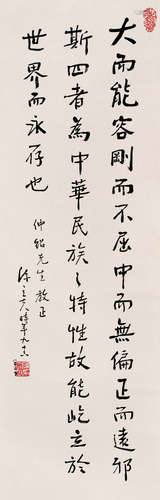 大而能容剛而不屈中而無偏正而遠邪
斯四者為中華民族之特性故能屹立於
世界而永存也
仲紹先生教正
陳立夫時年九十